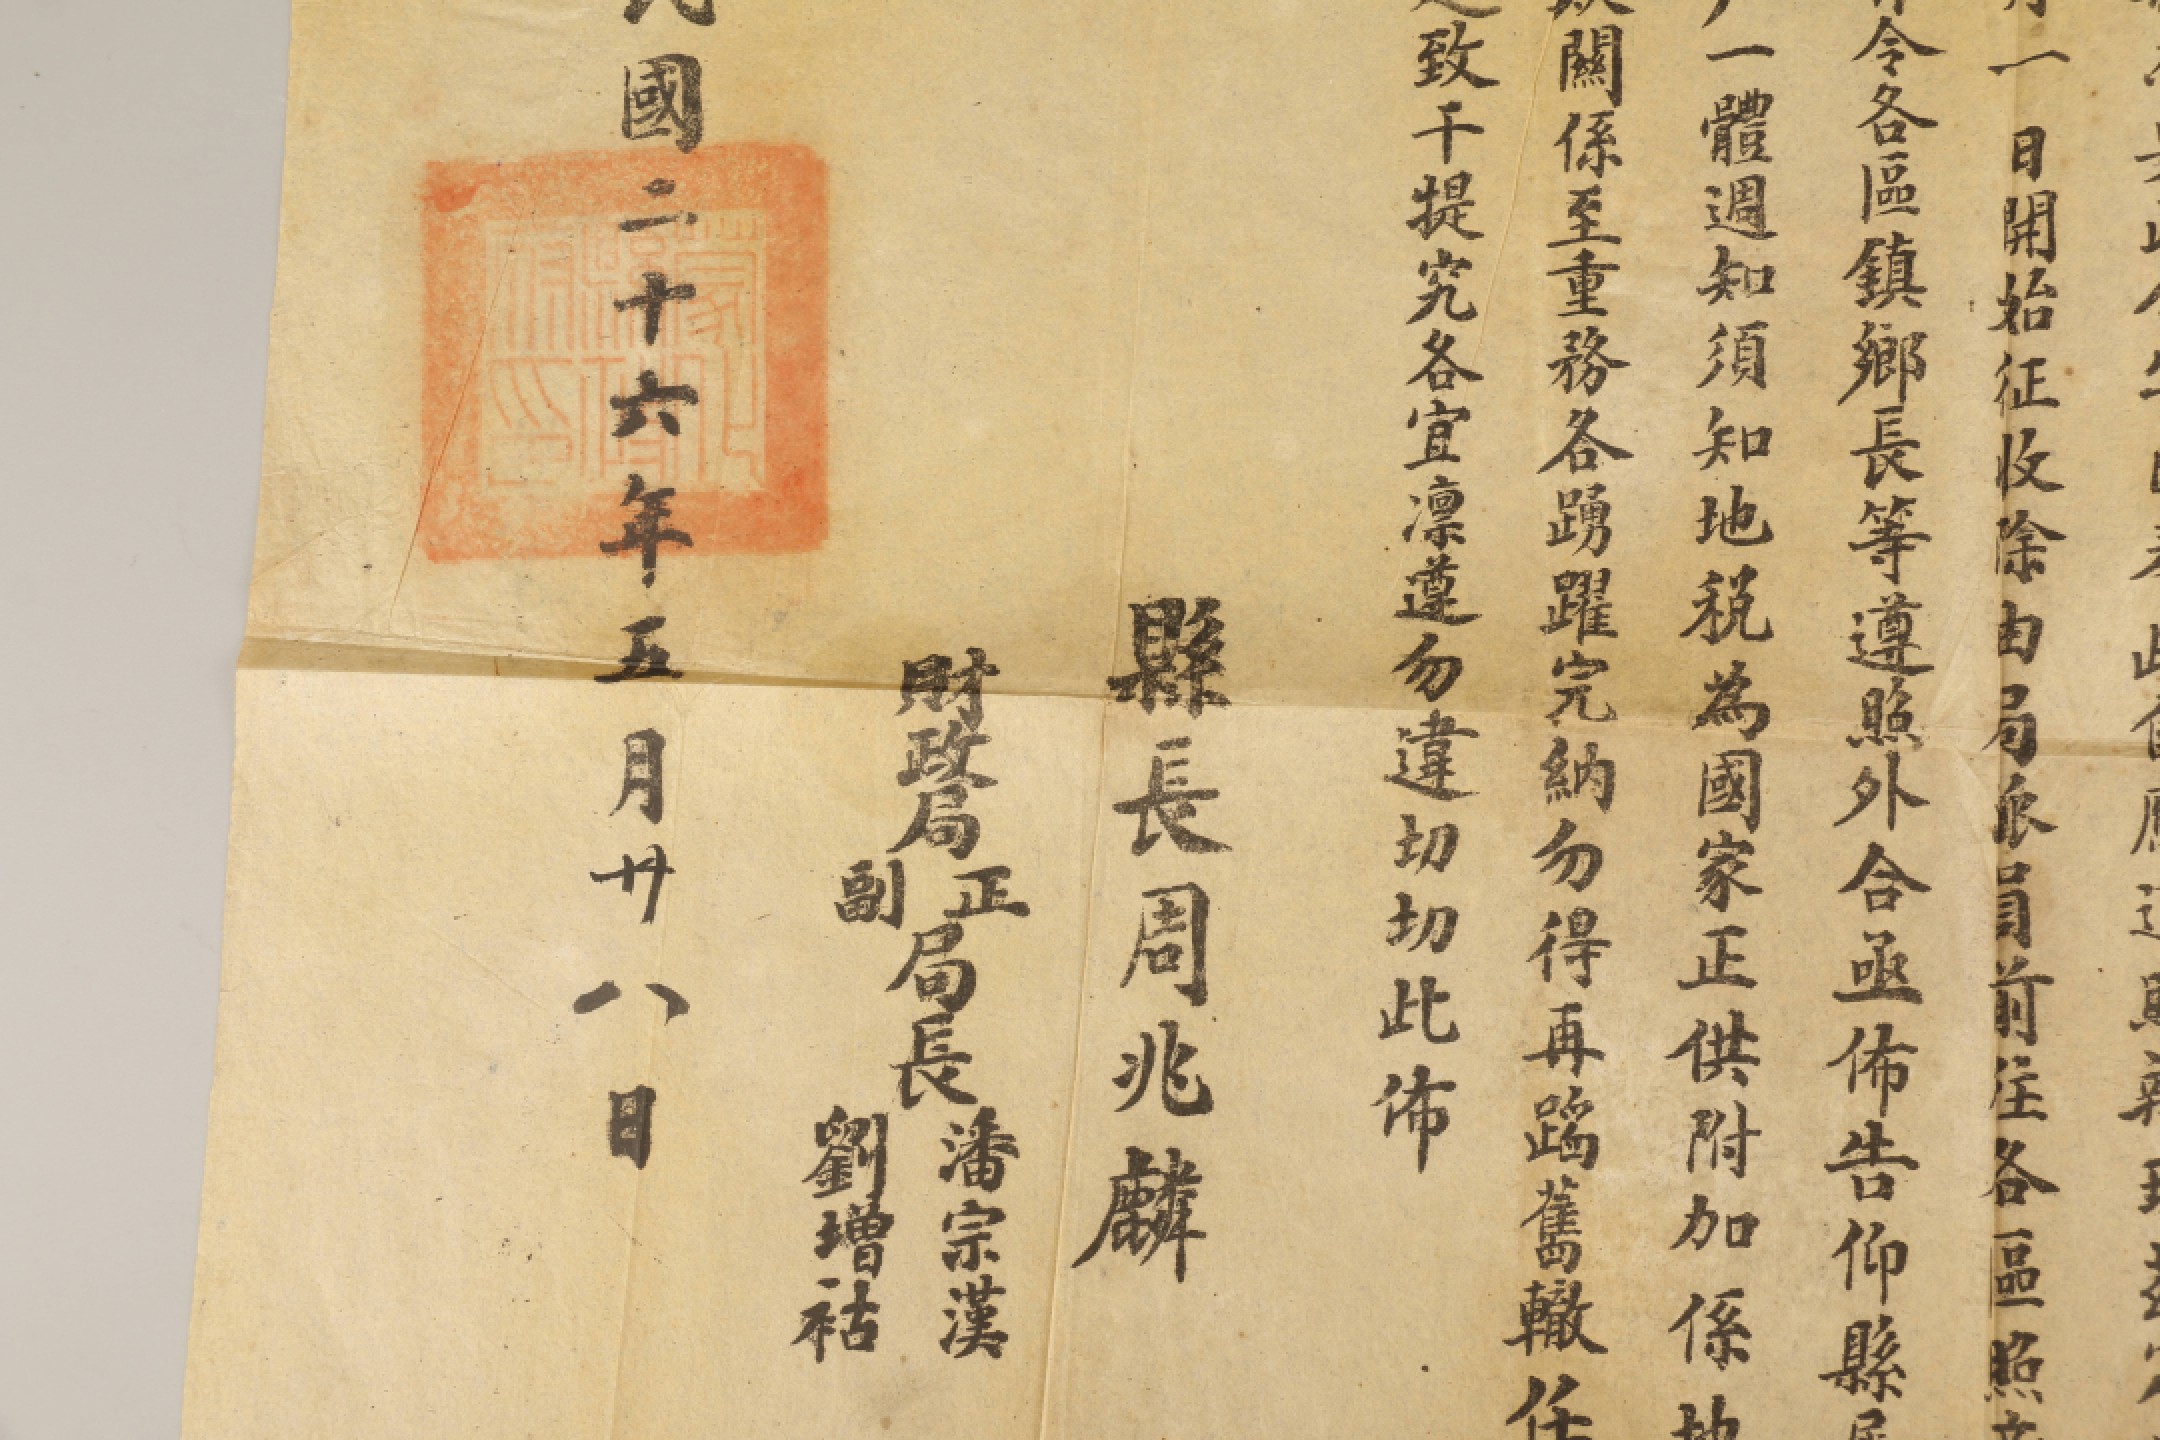 一日開始征收除由局派員前往各區照
令各區鎮鄉長等遵照外合亟佈告仰縣
一體週知須知地稅為國家正供附加係地
關係至重務各踴躍完納勿得再蹈舊轍任
致干提究各宜凛遵勿違切切此佈
縣長周兆麟
財政局正副局長潘宗漢劉增祜
民國二十六年五月廿八日